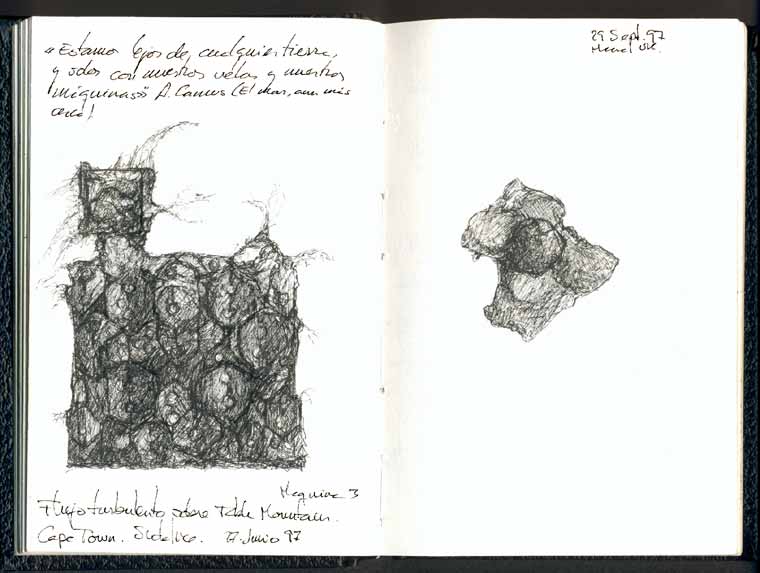 "Estamos lejos de cualquier tierra,
y solos con nuestras velas y nuestras
máquinas" A. Camus (El mar, aun más
cerca)
Maquina 3
Flujo turbulento sobre Table Mountain.
Cape Town. 27. Junio 97
29 Sept. 97